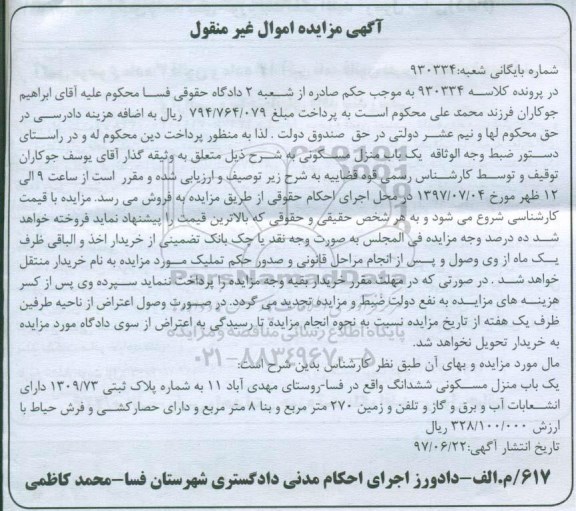 آگهی مزایده اموال غیر منقول
شماره بایگانی شعبه:۹۳۰۳۳۴
در پرونده کلاسه ۹۳۰۳۳۴ به موجب حکم صادره از شعبه ۲ دادگاه حقوقی فسا محکوم علیه آقای ابراهیم
جوکاران فرزند محمد علی محکوم است به پرداخت مبلغ ۷۹۴/۷۶۴/۰۷۹ ریال به اضافه هزینه دادرسی در
حق محکوم لها و نیم عشر دولتی در حق صندوق دولت . لذا به منظور پرداخت دین محکوم له و در راستای
دستور ضبط وجه الوثاقه یک باب منزل مسکونی به شرح ذیل متعلق به وثیقه گذار آقای یوسف جوکاران
توقیف و توسط کارشناس رسمی قوه قضاییه به شرح زیر توصیف و ارزیابی شده و مقرر است از ساعت ۹ الی
۱۲ ظهر مورخ ۱۳۹۷/۰۷/۰۴ در محل اجرای احکام حقوقی از طریق مزایده به فروش می رسد. مزایده با قیمت
کارشناسی شروع می شود و به هر شخص حقیقی و حقوقی که بالاترین قیمت را پیشنهاد نماید فروخته خواهد
شد ده درصد وجه مزایده فی المجلس به صورت وجه نقد یا چک بانک تضمینی از خریدار اخذ و الباقی ظرف
یک ماه از وی وصول و پس از انجام مراحل قانونی و صدور حکم تملیک مورد مزایده به نام خریدار منتقل
خواهد شد . در صورتی که در مهلت مقرر خریدار بقیه وجه مزایده را پرداخت ننماید سپرده وی پس از کسر
هزینه های مزایده به نفع دولت ضبط و مزایده تجدید می گردد. در صورت وصول اعتراض از ناحیه طرفین
ظرف یک هفته از تاریخ مزایده نسبت به نحوه انجام مزایده تا رسیدگی به اعتراض از سوی دادگاه مورد مزایده
به خریدار تحویل نخواهد شد.
مال مورد مزایده و بهای آن طبق نظر کارشناس بدین شرح است:
یک باب منزل مسکونی ششدانگ واقع در فسا-روستای مهدی آباد ۱۱ به شماره پلاک ثبتی ۱۳۰۹/۷۳ دارای
انشعابات آب و برق و گاز و تلفن و زمین ۲۷۰ متر مربع و بنا ۸ متر مربع و دارای حصار کشی و فرش حیاط با
ارزش ۳۲۸/۱۰۰/۰۰۰ ریال
تاریخ انتشار آگهی:۹۷/۰۶/۲۲
۶۱۷/م.الف-دادورز اجرای احکام مدنی دادگستری شهرستان فسا-محمد کاظمی
ParsNamadData
پایگاه اطلاع رسانی مناقصه و مزایده
۰۲۱-۸۸۳۴۹۶۷۰-۵